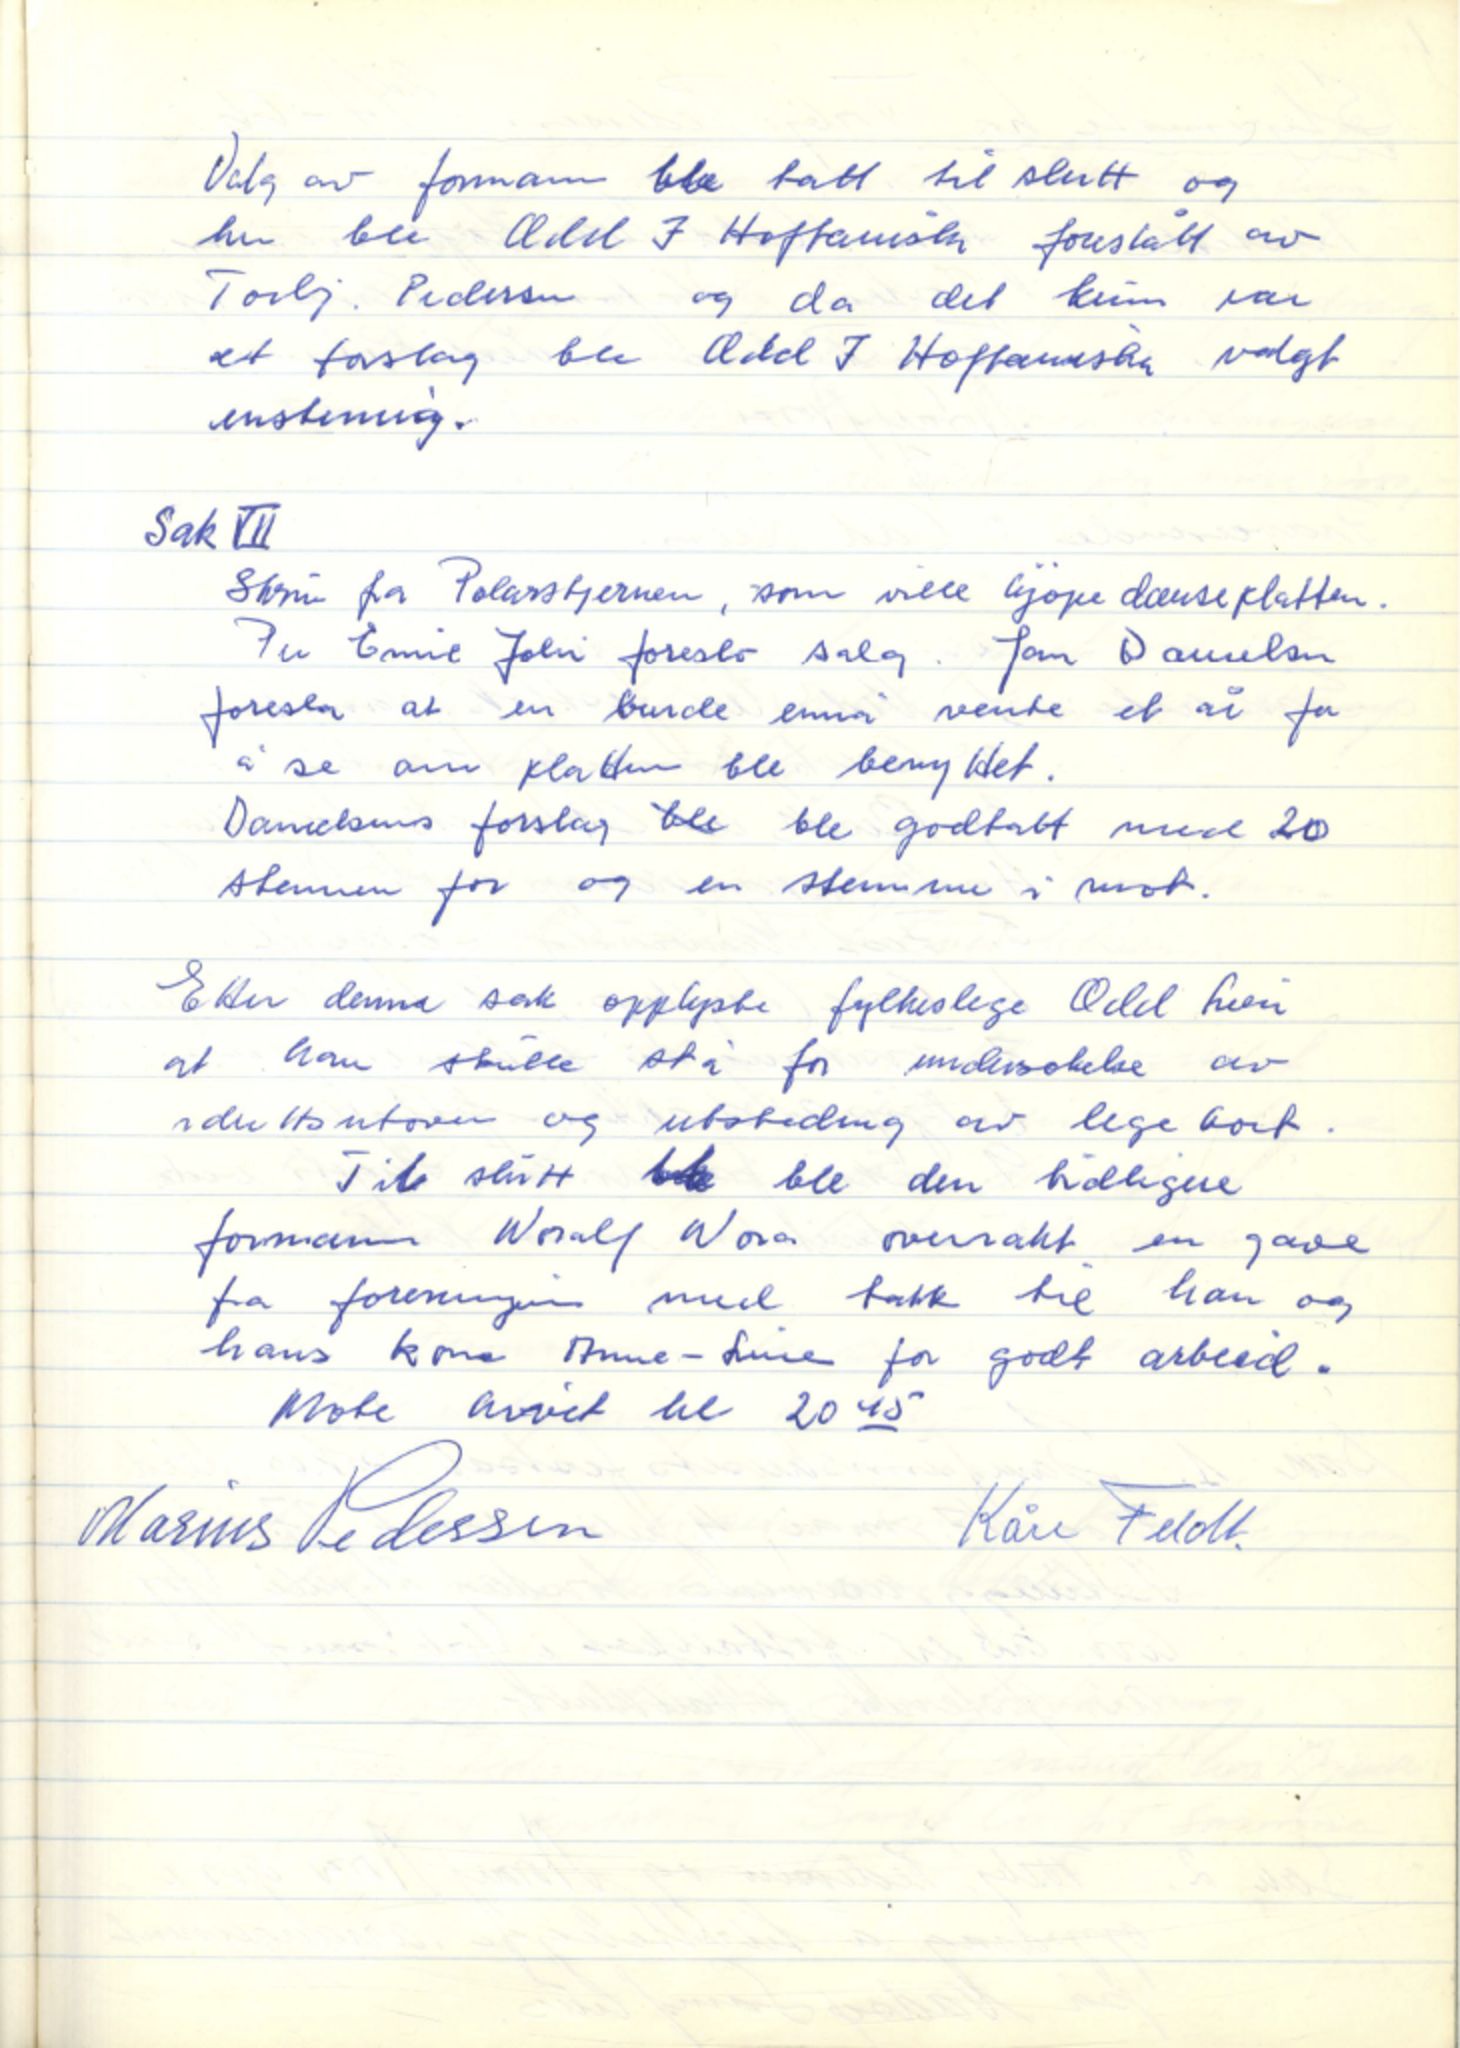 Valg av formann ble tatt til slutt og
her ble Odd I Hoftaniska forestått av
Torbj. Pedersen og da det kun var
et forslag ble Odd I Hoftaniska valgt
enstemmig.
Sak VII
Skriv fra Polarstjernen, som ville kjöpe danseplatten.
Per Emil John foreslo salg. Jan Danielsen
foreslo at en burde ennå vente et år for
å se om platten ble benyttet.
Danielsens forslag ble ble godtatt med 20
stemmer for og en stemme i mot.
Etter denne sak opplyste fylkeslege Odd Lien
at han skulle stå for undersøkelse av
idrettsutøver og utsteding av legekort.
Til slutt ble den tidligere
formann Noralf Nora overrakt en gave
fra foreningen med takk til han og
hans kone Anne-Lise for godt arbeid.
Møte hevet kl 20 45
Marius Pedersen Kåre Feldt.